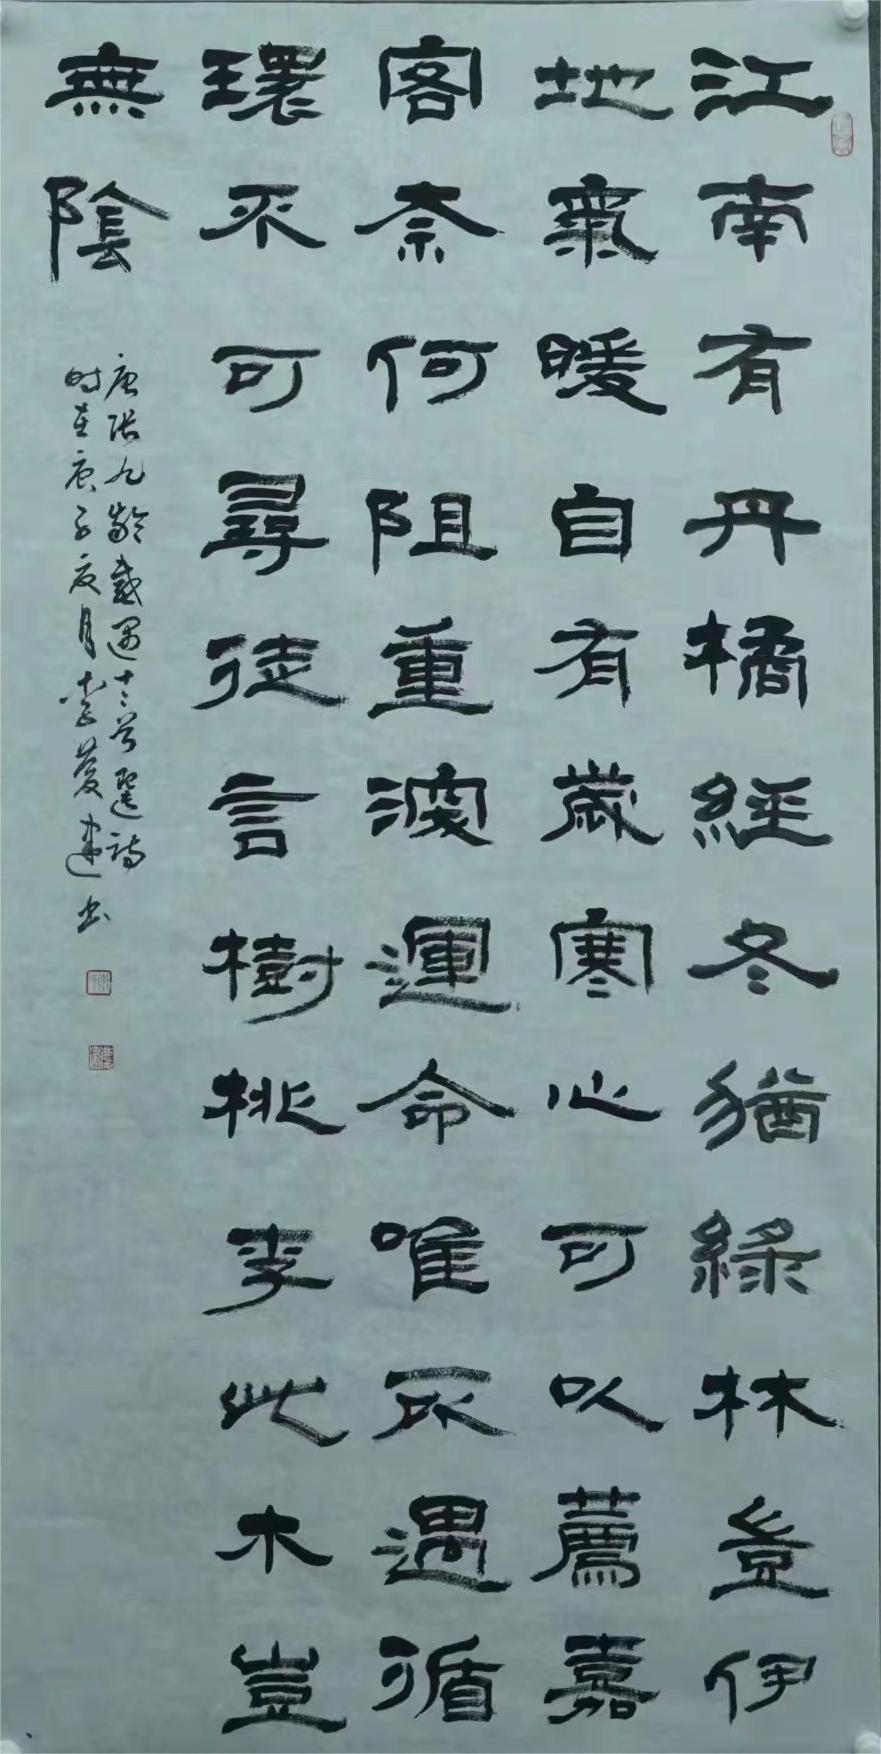 江南有丹橘經冬猶綠林豈伊
地氣暖自有歲寒心可以薦嘉
客奈何阻重深運命唯所遇循
環不可尋徒言樹桃李此木豈
無陰
唐張九齡感遇十二首選詩
时在庚子夜月李慶建书